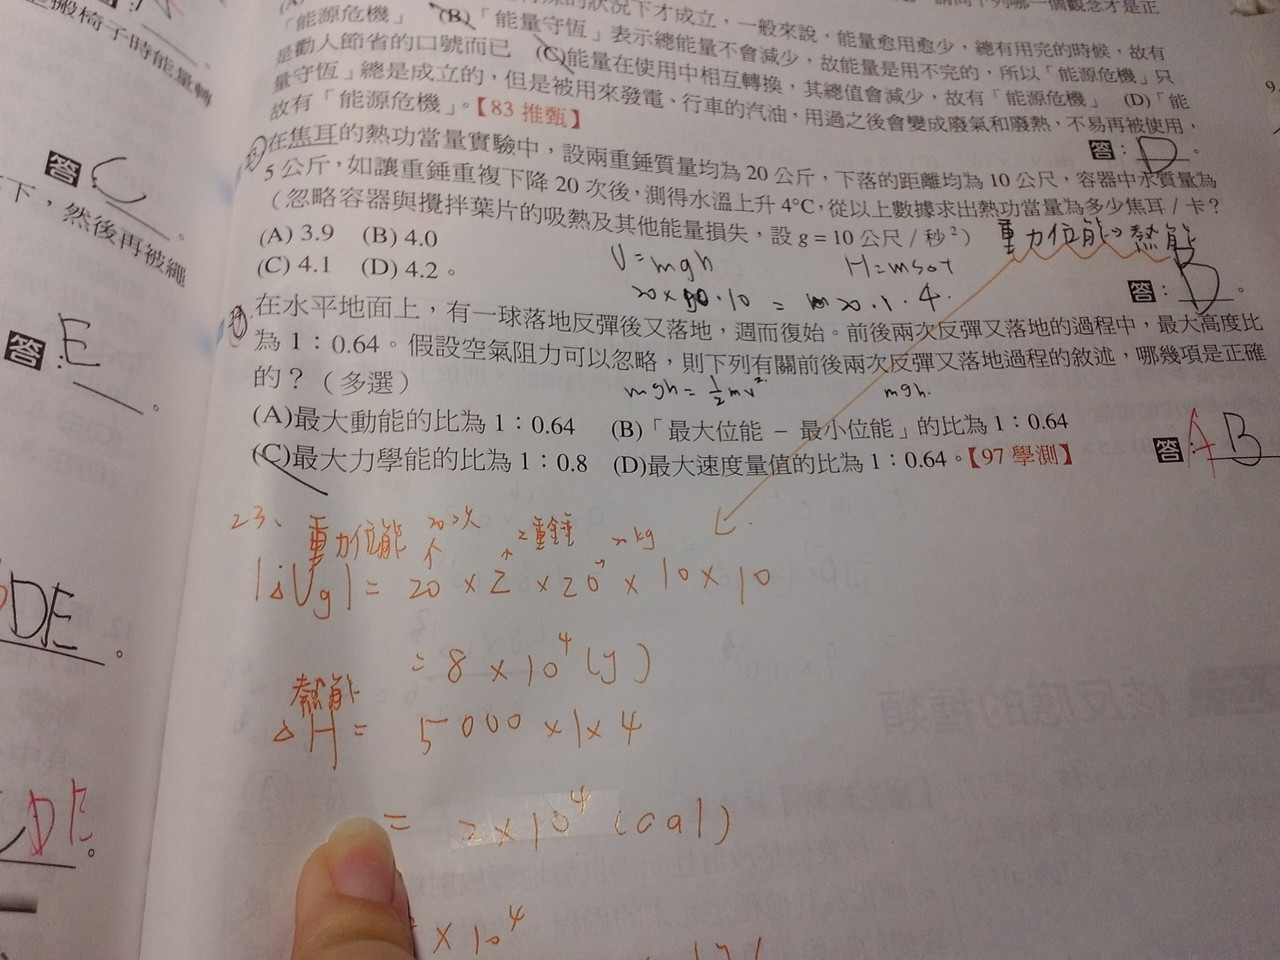 「能源危機」 (B)「能量守恆」表示總能量不會減少，故能量是用不完的，所以「能源危機」只
是勸人節省的口號而已 (C)能量在使用中相互轉換，其總值會減少，故有「能源危機」 (D)「能
量守恆」總是成立的，但是被用來發電、行車的汽油，用過之後會變成廢氣和廢熱，不易再被使用，
故有「能源危機」。【83 推甄】
答：D。
在焦耳的熱功當量實驗中，設兩重錘質量均為 20 公斤，下落的距離均為 10 公尺，容器中水質量為
5 公斤，如讓重錘重複下降 20 次後，測得水溫上升 4°C，從以上數據求出熱功當量為多少焦耳／卡？
（忽略容器與攪拌葉片的吸熱及其他能量損失，設 g = 10 公尺／秒²）
重力位能→熱能
(A) 3.9 (B) 4.0
(C) 4.1 (D) 4.2。
U = mgh
H = msΔt
答：B。
在水平地面上，有一球落地反彈後又落地，週而復始。前後兩次反彈又落地的過程中，最大高度比
為 1：0.64。假設空氣阻力可以忽略，則下列有關前後兩次反彈又落地過程的敘述，哪幾項是正確
的？（多選）
mgh = ½mv²
mgh.
(A)最大動能的比為 1：0.64 (B)「最大位能 − 最小位能」的比為 1：0.64
(C)最大力學能的比為 1：0.8 (D)最大速度量值的比為 1：0.64。【97 學測】
答：AB
23、
重力位能 20次 2重錘 20kg
|ΔUg| = 20 × 2 × 20 × 10 × 10
= 8 × 10⁴ (J)
熱能
ΔH = 5000 × 1 × 4
= 2 × 10⁴ (cal)
× 10⁴
搬椅子時能量轉
答：C。
下，然後再被繩
答：E。
DE。
DE。